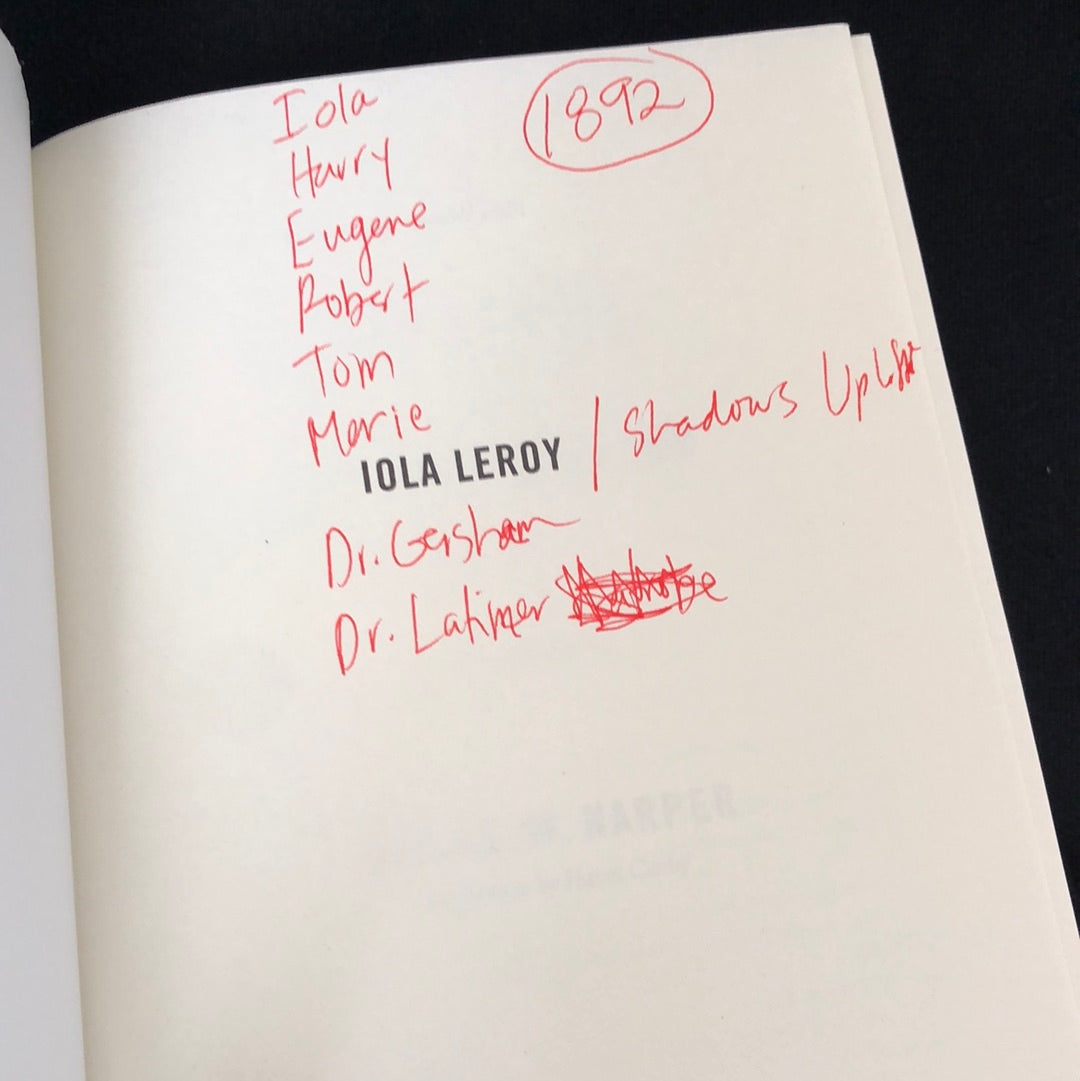 Iola
1892
Harry
Eugene
Robert
Tom
Marie
IOLA LEROY / Shadows Uplift
Dr. Gersham
Dr. Latimer
HARPER